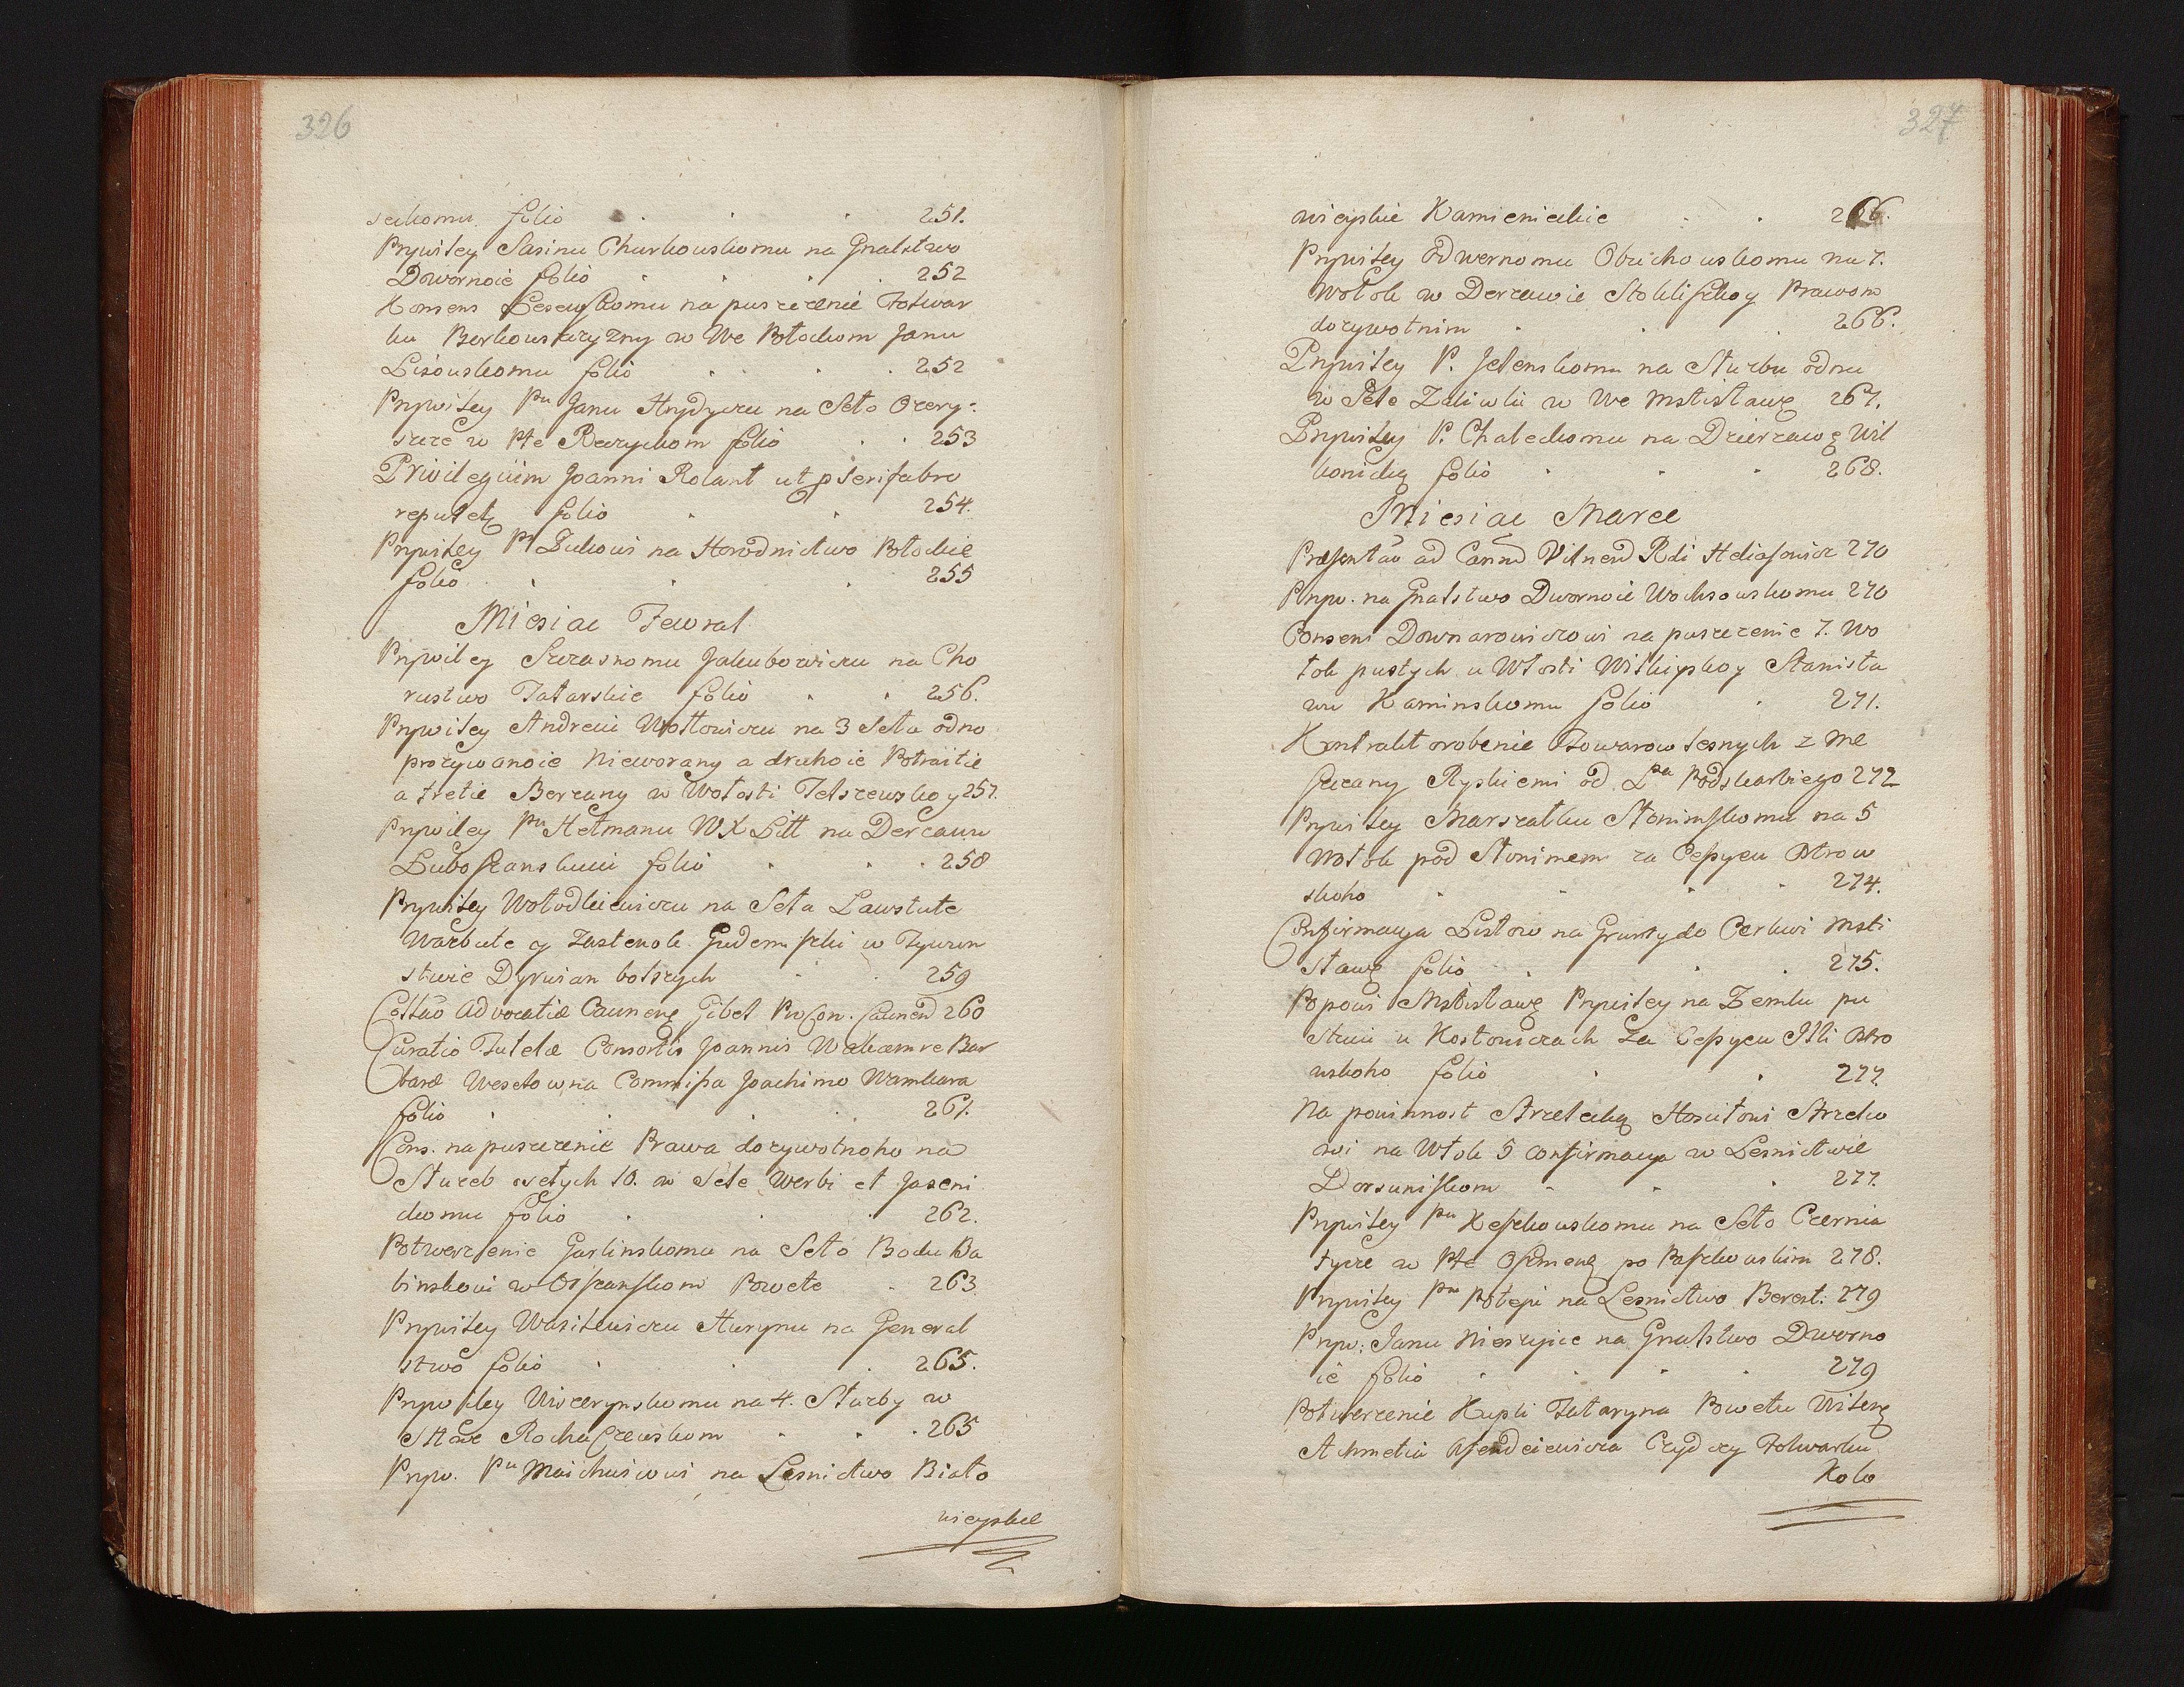 326
seckomu folio . . . 251.
Prywiley Sasinu Churkouskomu na Gnalstwo
Dwornoie folio . . . 252
Konsens Leseuskomu na puszczenie Folwar
ku Borkouszczyzny w We Połockom Janu
Lisouskomu folio . . . 252
Prywiley Pu Janu Hrydyczu na Seło Ozery-
szcze w Pte Rzeczyckom folio . . 253
Privilegium Joanni Rolant ut pro serifabro
reputetr folio . . 254.
Prywiley Pu Zukowi na Horodnictwo Połockie
folio . . . 255
Miesiac Fewral
Prywiley Szczasnomu Jakubowiczu na Cho
rustwo Tatarskie folio . . 256.
Prywiley Andreiu Wołłowiczu na 3 Seła odno
prozywanoie Nieworany a druhoie Potraitie
a tretie Berzany w Wołosti Telszewskoy 257.
Prywiley Pu Hetmanu WX Litt na Derzawu
Luboszanskuiu folio . . . 258
Prywiley Wołodkiewiczu na Seła Lawstute
Warbute y zastenok Gudemszki w Tywun
stwie Dyrwian bolszych . . 259
Collao Advocatiæ Caunens Gibel ProCon. Caunens 260
Curatio Tutelæ Consortis Joannis Wakamre Bar
baræ Wesełowna Commissa Joachimo Wambara
folio . . . . 261.
Cons. na puszczenie Prawa dozywotnoho na
Słuzeb sełych 10. w Sele Werbi et Jaseni
ckomu folio . . . 262.
Potwerzenie Garlinskomu na Seło Bodu Ba
binskoiu w Orszanskom Powete . 263.
Prywiley Wasilewiczu Hurynu na General
stwo folio . . . 265.
Prywiley Wiszerynskomu na 4. Słuzby w
Sttwe Rochaczewskom . . . 265
Pryw. Pu Maichusiowi na Lesnictwo Biało
wieyskie
327
wieyskie Kamienieckie . . 266.
Prywiley Odwernomu Obuchouskomu na 7.
Wołok w Derzawie Stokliszkoy Prawom
dozywotnim . . . 266.
Prywiley P. Jelenskomu na Słuzbu odnu
w Sele Zaliwlu w We Mstisławs 267.
Prywiley P. Chaleckomu na Dzierzawę Wil
konicką folio . . . 268.
Miesiac Marec
Præsentao ad Canno Vilnens Rdi Heliaszowicz 270
Pryw. na Gnalstwo Dwornoie Wochsouskomu 270
Consens Downarowiczowi na puszczenie 7. Wo
łok pustych u Włosti Wilkiyskoy Stanisła
wu Kaminskomu folio . 271.
Kontrakt orobenie Towarow lesnych z Me
szczany Ryskiemi od Lgo Podskarbiego 272
Prywiley Marszałku Słonimskomu na 5
Wołok pod Słonimem za Cessyeu Ostrow
skoho . . . . 274.
Confirmacya Listow na Grunty do Cerkwi Msti
sławs folio . . . 275.
Popowi Mstisławs Prywiley na Zemlu pu
stuiu u Kosłowiczach za Cessyeu Illi Ostro
wskoho folio . . 277.
Na powinnost Strzelecką Hosciłowi Strzelco
wi na Włok 5 confirmacya w Lesnictwie
Dorsuniskom . . . 277.
Prywiley Pu Keszkouskomu na Seło Czernia
tycze w Pte Oszmens po Paszkouskim 278.
Prywiley Pu Potepi na Lesnictwo Berest: 279
Pryw: Janu Nieszyjce na Gnalstwo Dworno
ie folio . . . . 279
Potwerzenie Kupli Tataryna Powetu Wilens
Achmetia Afendeiewicza Czydczy Folwarku
Kolo